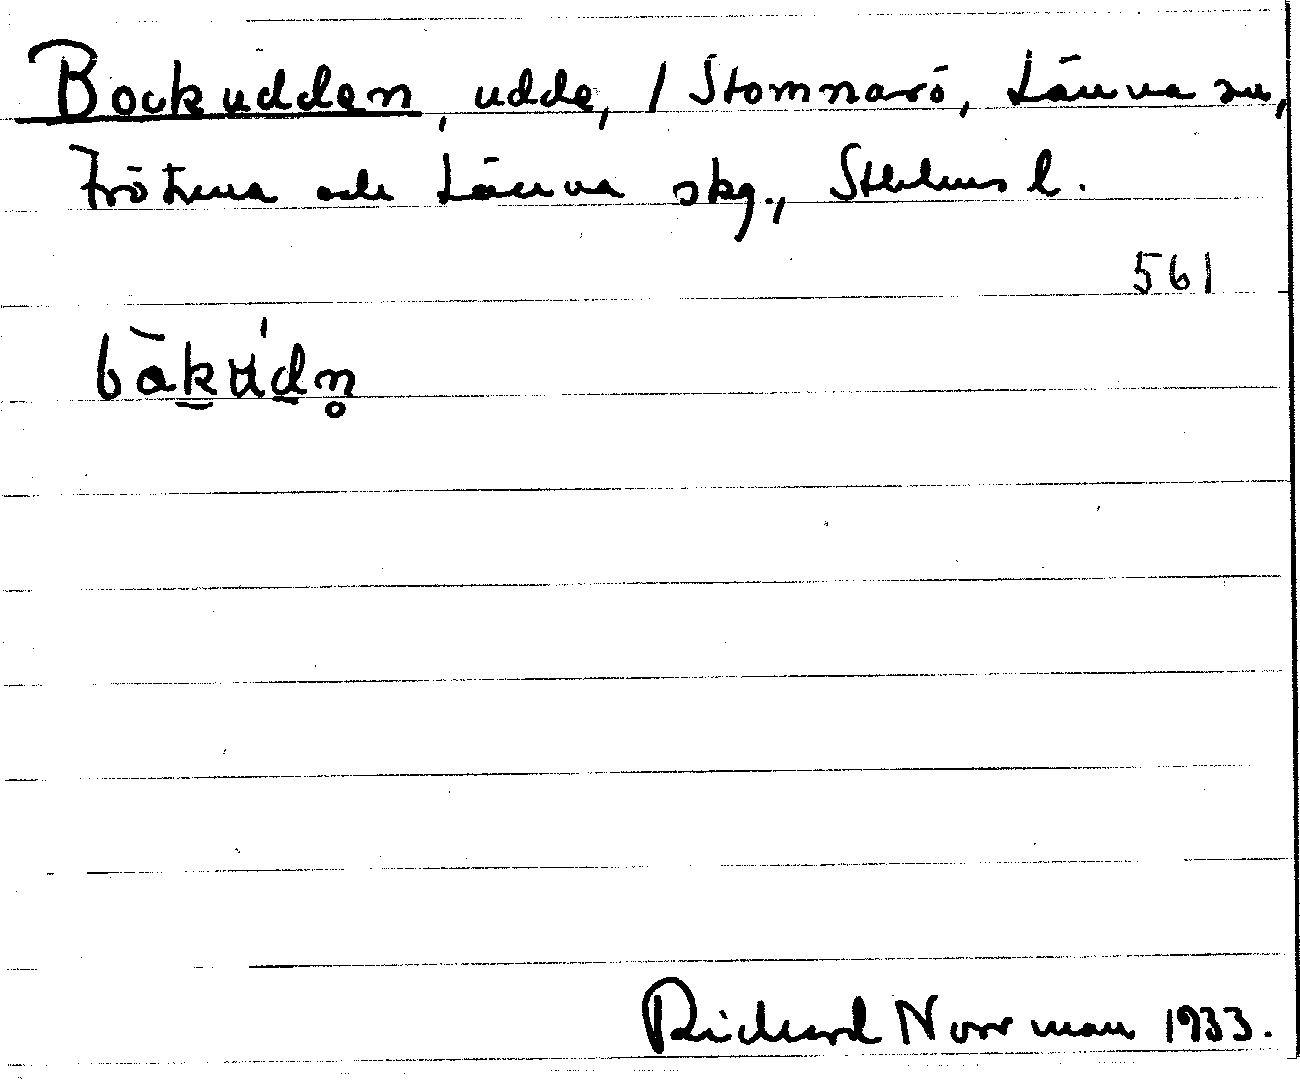 Bockudden, udde, / Stomnarö, Länna sn,
Frötuna och Länna skg., Sthlms l.
561
Richard Norrman 1933.